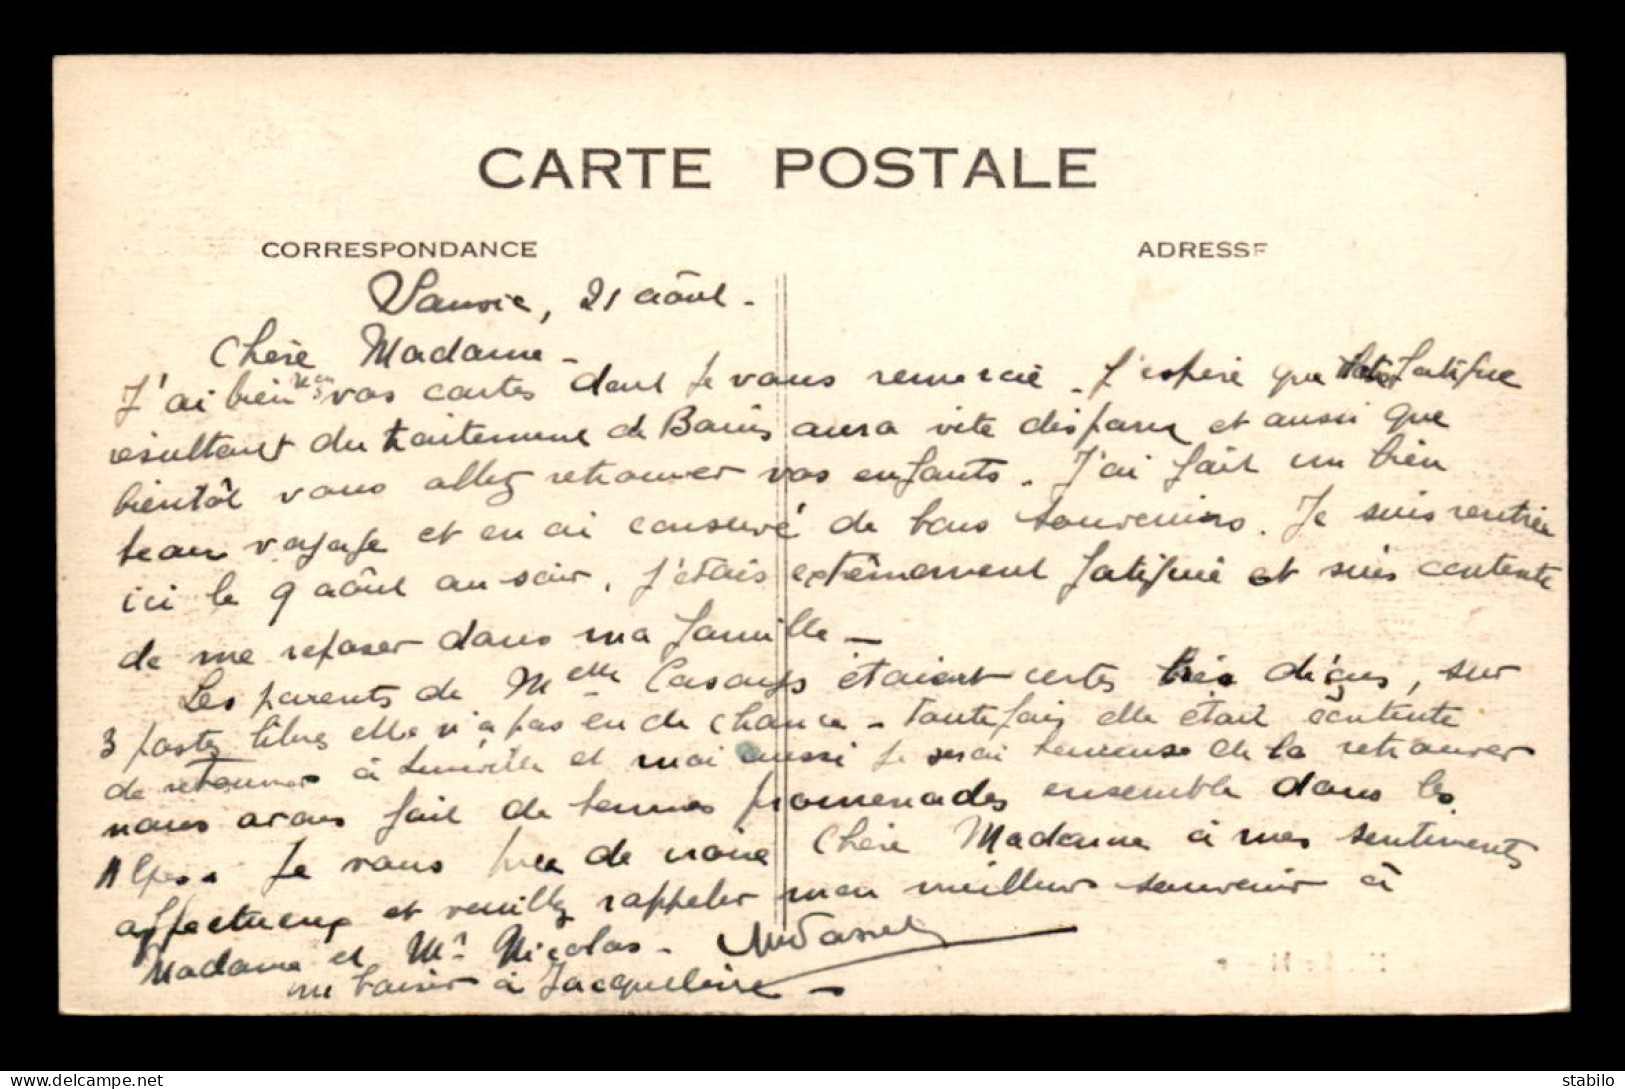 CARTE POSTALE
CORRESPONDANCE
ADRESSE
21 août -
Chère Madame -
J'ai bien reçu vos cartes dont je vous remercie. J'espère que fatigue
résultant du traitement de Bains aura vite disparu et aussi que
bientôt vous allez retrouver vos enfants. J'ai fait un bien
beau voyage et en ai conservé de bons souvenirs. Je suis rentrée
ici le 9 août au soir, j'étais extêmement fatiguée et suis contente
de me reposer dans ma famille -
Les parents de Melle étaient certes très déçus, sur
3 postes libres elle n'a pas eu de chance - Toutefois elle était contente
de retourner à et moi aussi je serai heureuse de la retrouver
nous avons fait de bonnes promenades ensemble dans les
Alpes. Je vous prie de croire Chère Madame à mes sentiments
affectueux et veuillez rappeler mon meilleur souvenir à
Madame et Mr Nicolas -
un baiser à Jacqueline -
stabilo